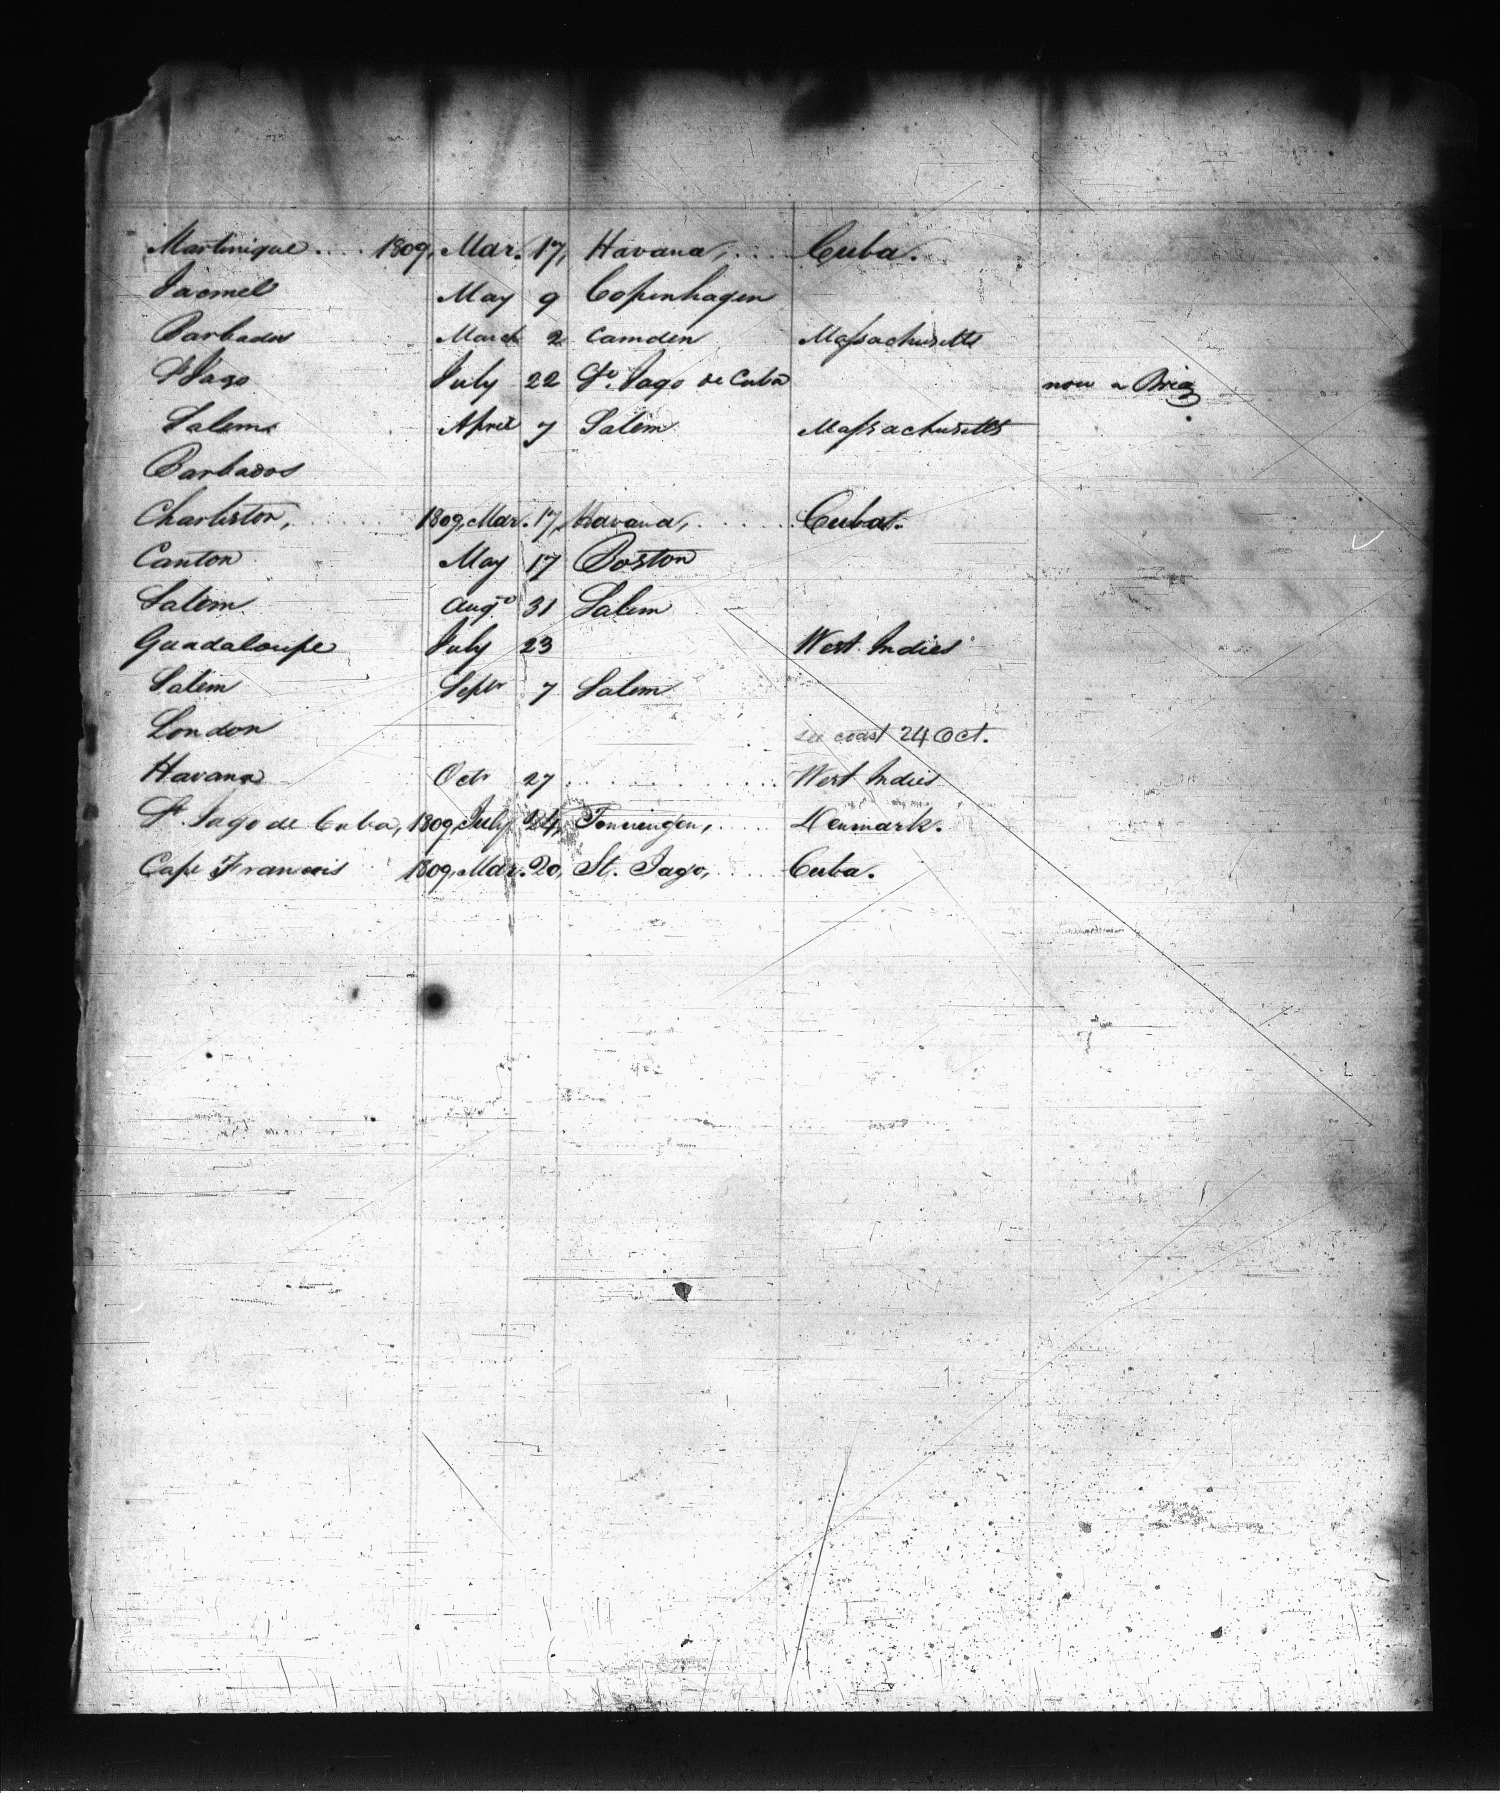 Martinique .... 1809, Mar. 17, Havana, .... Cuba.
Jacmel May 9 Copenhagen
Barbados March 2 Camden Massachusetts
St Jago July 22 St. Jago de Cuba now a Brig
Salem April 7 Salem Massachusetts
Barbados
Charleston, ........ 1809, Mar. 17, Havana, ..... Cuba.
Canton May 17 Boston
Salem Augt 31 Salem
Guadaloupe July 23 West Indies
Salem Septr 7 Salem
London coast 24 Oct.
Havana Octr 27 .......... West Indies
St. Jago de Cuba, 1809, July 24, Tonningen, ..... Denmark.
Cape Francois 1809, Mar. 20, St. Jago, ..... Cuba.